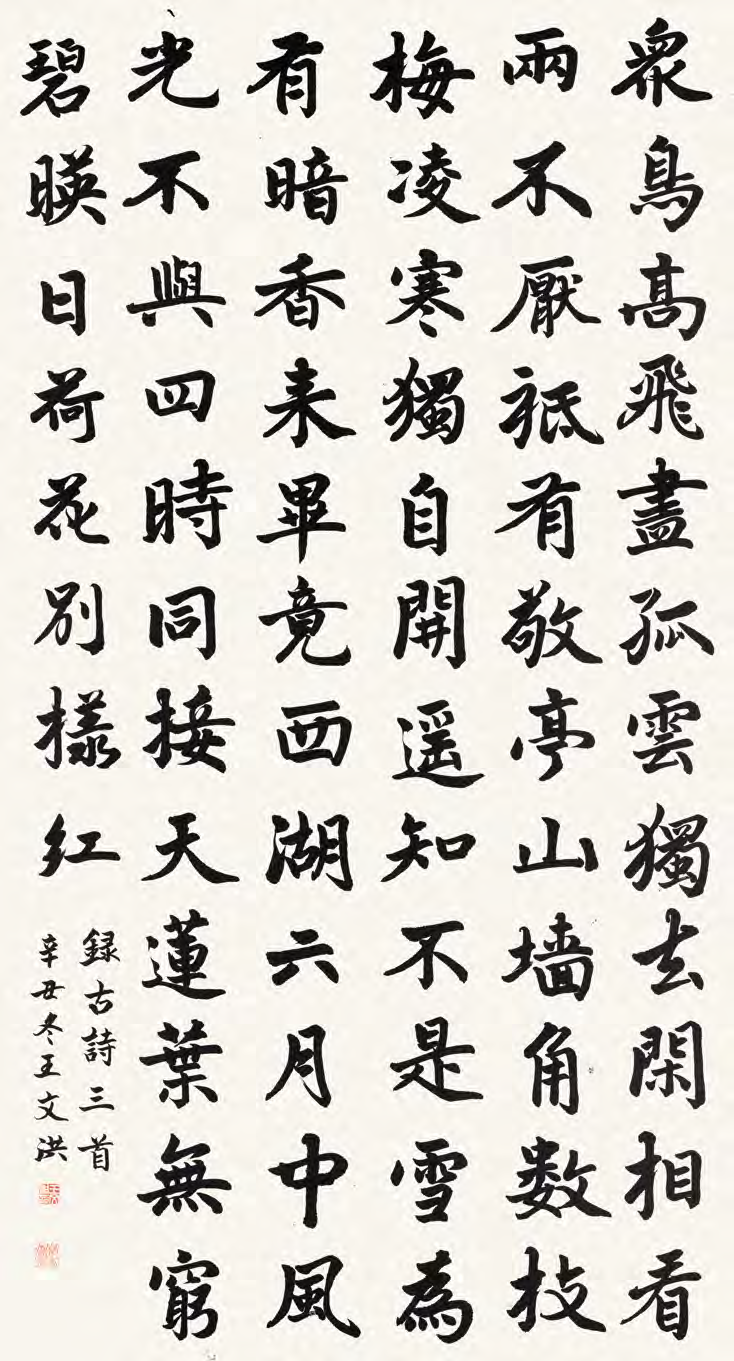 衆鳥髙飛盡孤雲獨去閑相看
兩不厭祗有敬亭山墙角数技
梅凌寒獨自開遥知不是雪為
有暗香来畢竟西湖六月中風
光不與四時同接天蓮葉無窮
碧暎日荷花别樣红
録古詩三首
辛丑冬王文洪